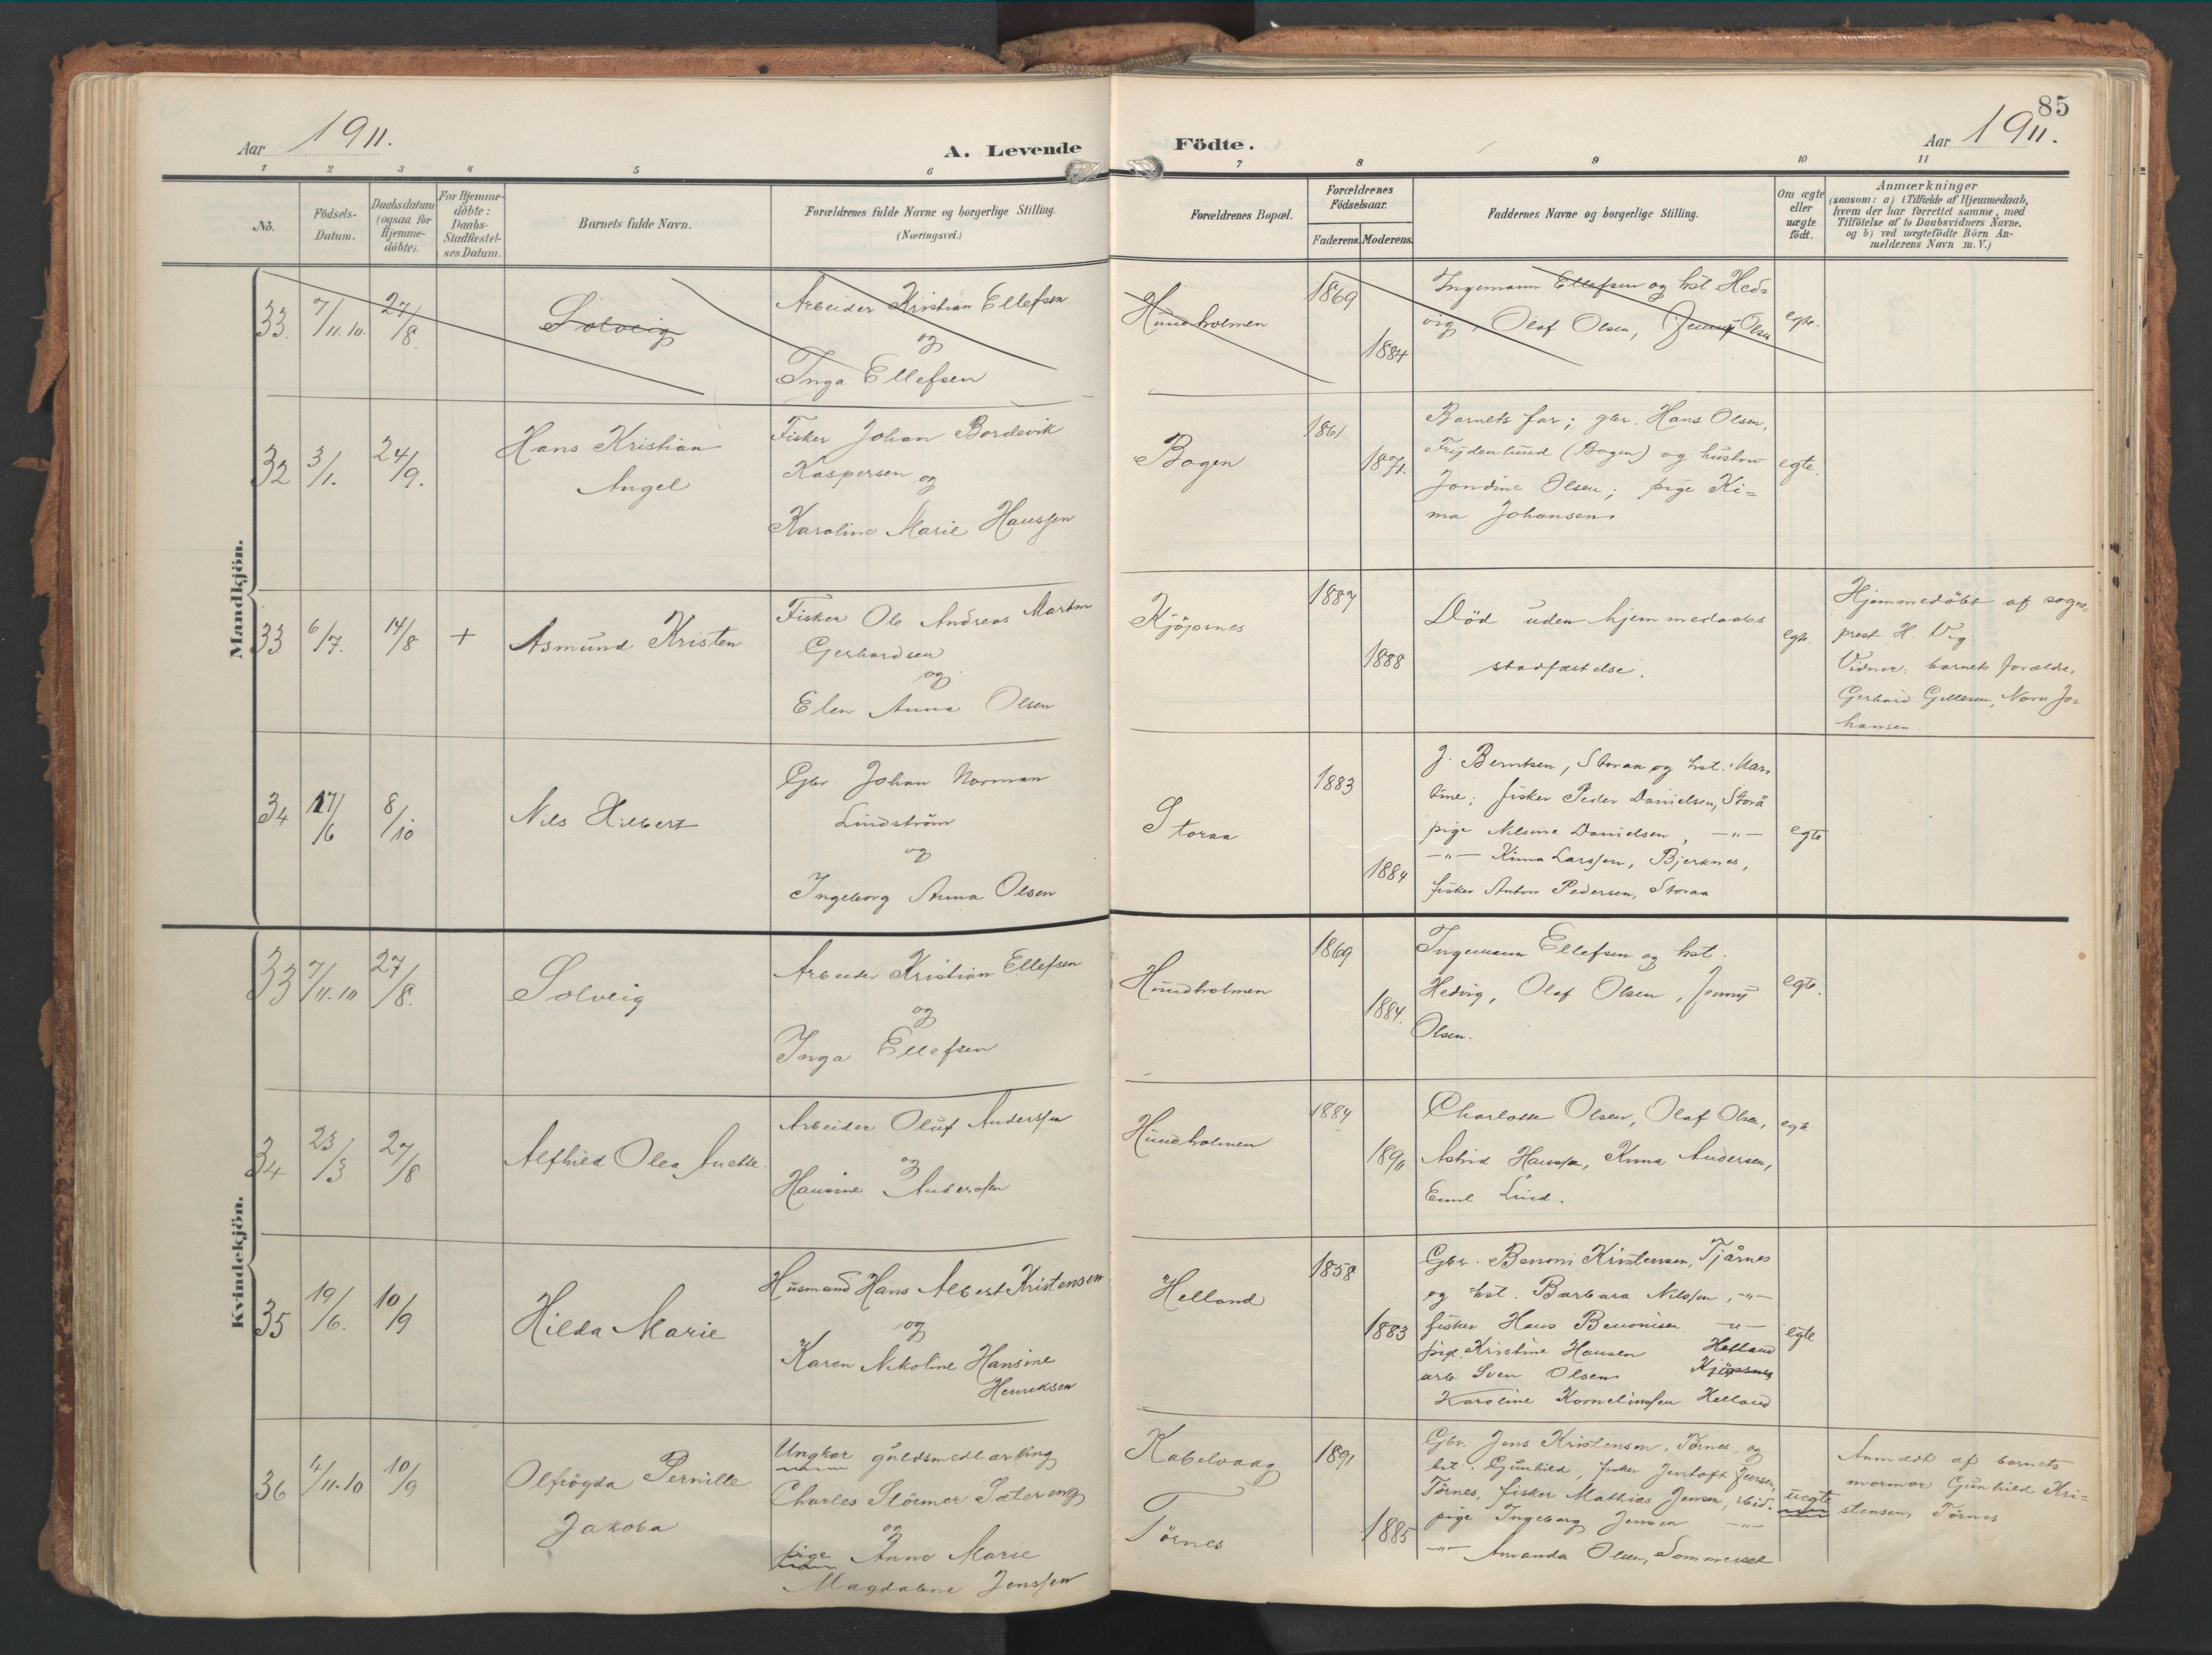 85
Aar 1911.
A. Levende Födte.
Aar 1911.
1 2 3 4 5 6 7 8 9 10 11
No.
Födsels-
Datum.
Daabsdatum
(ogsaa for
Hjemme-
döbte).
For Hjemme-
döbte:
Daabs-
Stadfæstel-
ses Datum.
Barnets fulde Navn.
Forældrenes fulde Navne og borgerlige Stilling.
(Næringsvei.)
Forældrenes Bopæl.
Forældrenes
Födselsaar.
Faderens. Moderens.
Faddernes Navne og borgerlige Stilling.
Om ægte
eller
uægte
födt.
Anmærkninger
(saasom: a) i Tilfælde af Hjemmedaab,
hvem der har forrettet samme, med
Tilföielse af to Daabsvidners Navne,
og b) ved uægtefödte Börn An-
melderens Navn m. V.)
Mandkjön.
33. 7/11.10. 27/8.
Solveig
Arbeider Kristian Ellefsen
og
Inga Ellefsen
Hundholmen
1869
1884
Ingemann Ellefsen og hst Hed-
vig, Olaf Olsen, Jenny Olsen
egte.
32 3/1. 24/9.
Hans Kristian
Angel
Fisker Johan Bordevik
Kaspersen og
Karoline Marie Hanssen
Bogen
1861
1871.
Barnets far; gbr. Hans Olsen,
Frydenlund (Bogen) og hustru
Jondine Olsen; pige Ki-
ma Johansen
egte.
33 6/7. 14/8 +
Asmund Kristen
Fisker Ole Andreas Martin
Gerhardsen
og
Elen Anna Olsen
Kjöpsnes
1887
1888
Död uden hjemmedaabs
stadfæstelse.
egte.
Hjemmedöbt af sogne-
prest H. Vig.
Vidner: barnets forældre,
Gerhard Gullesen, Nora Jo-
hansen.
34 17/6 8/10
Nils Hilbert
Gbr. Johan Norman
Lindström
og
Ingeborg Anna Olsen
Storaa
1883
1884
J. Berntsen, Storaa og hst. Mar-
tine; fisker Peder Danielsen, Storå
pige Nilsine Danielsen, -"-
-"- Kima Larssen, Bjerknes,
fisker Anton Pedersen, Storaa
egte
Kvindekjön.
33 7/11.10 27/8.
Solveig
Arbeider Kristian Ellefsen
og
Inga Ellefsen
Hundholmen
1869
1884.
Ingemann Ellefsen og hst.
Hedvig, Olaf Olsen, Jenny
Olsen.
egte.
34 23/3 27/8
Alfhild Olea Anette.
Arbeider Oluf Anderssen
og
Hansine Anderssen
Hundholmen
1884
1890
Charlotte Olsen, Olaf Olsen,
Astrid Hanssen, Kima Andersen,
Emil Lind.
egte
35 19/6. 10/9
Hilda Marie
Husmand Hans Albert Kristensen
og
Karen Nikoline Hansine
Henriksen
Helland
1858
1883
Gbr. Benoni Kristensen, Tjårnes
og hst. Barbara Nilssen, -"-
fisker Hans Benonisen -"-
pige Kristine Hansen Helland
arb. Sven Olsen Kjöpsnes
Karoline Kornelinssen Helland
egte
36 4/11.10 10/9
Olfrögda Pernille
Jakoba
Ungkar guldsmedlærling
Charles Störmer Sætereng
og
pige Anne Marie
Magdalene Jenssen
Kabelvaag
Törnes
1891
1885
Gbr. Jens Kristensen, Törnes, og
hst. Gunhild, fisker Jentoft Jensen,
Törnes, fisker Mathias Jensen, ibid.
pige Ingeborg Jensen -"-
-"- Amanda Olsen, Sommerset
uegte
Anmeldt af barnets
mormor Gunhild Kri-
stensen, Törnes